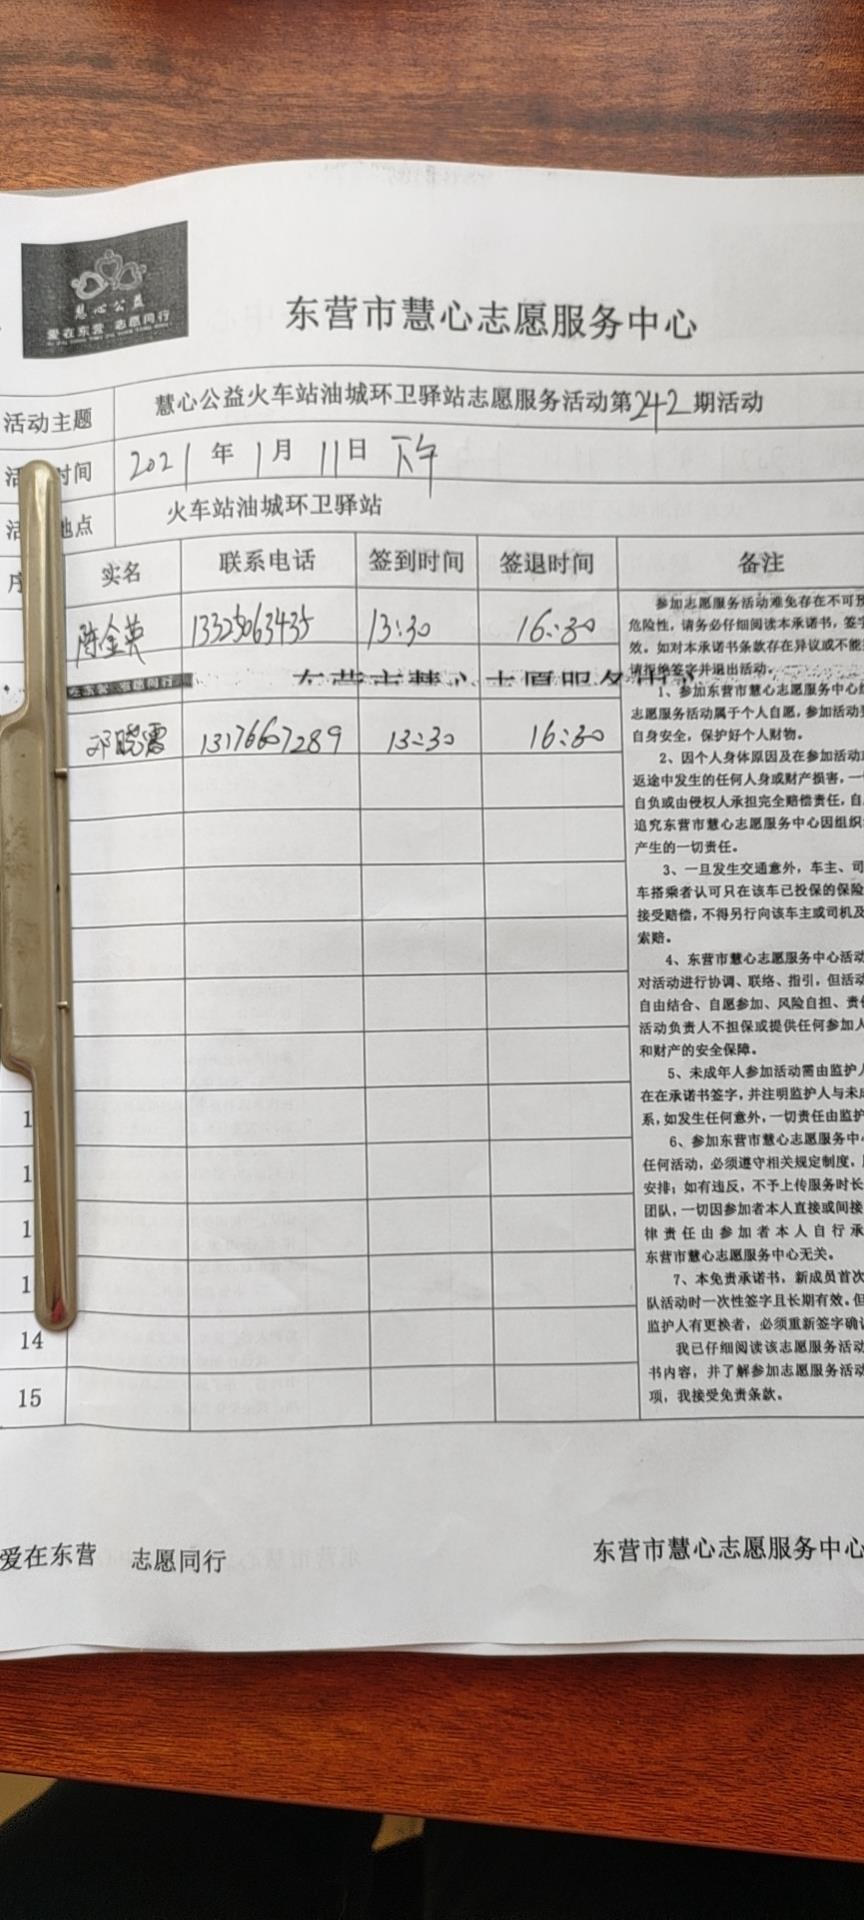 慧心公益
爱在东营 志愿同行
东营市慧心志愿服务中心
活动主题 慧心公益火车站油城环卫驿站志愿服务活动第242期活动
活 时间 2021年1月11日 下午
活 地点 火车站油城环卫驿站
序 实名 联系电话 签到时间 签退时间 备注
陈金英 13325063435 13:30 16:30
东营市慧心志愿服务中心
邓晓霞 13176607289 13:30 16:30
参加志愿服务活动难免存在不可预
危险性，请务必仔细阅读本承诺书，签字
效。如对本承诺书条款存在异议或不能
请拒绝签字并退出活动。
1、参加东营市慧心志愿服务中心组
志愿服务活动属于个人自愿，参加活动
自身安全，保护好个人财物。
2、因个人身体原因及在参加活动
返途中发生的任何人身或财产损害，一
自负或由侵权人承担完全赔偿责任，自
追究东营市慧心志愿服务中心因组织
产生的一切责任。
3、一旦发生交通意外，车主、司
车搭乘者认可只在该车已投保的保险
接受赔偿，不得另行向该车主或司机及
索赔。
4、东营市慧心志愿服务中心活动
对活动进行协调、联络、指引，但活动
自由结合、自愿参加、风险自担、责
活动负责人不担保或提供任何参加人
和财产的安全保障。
5、未成年人参加活动需由监护人
在在承诺书签字，并注明监护人与未成
系，如发生任何意外，一切责任由监护
6、参加东营市慧心志愿服务中心
任何活动，必须遵守相关规定制度，
安排；如有违反，不予上传服务时长
团队，一切因参加者本人直接或间接
律责任由参加者本人自行承
东营市慧心志愿服务中心无关。
7、本免责承诺书，新成员首次
队活动时一次性签字且长期有效。但
监护人有更换者，必须重新签字确认
我已仔细阅读该志愿服务活动
书内容，并了解参加志愿服务活动
项，我接受免责条款。
1
1
1
1
14
15
爱在东营 志愿同行 东营市慧心志愿服务中心